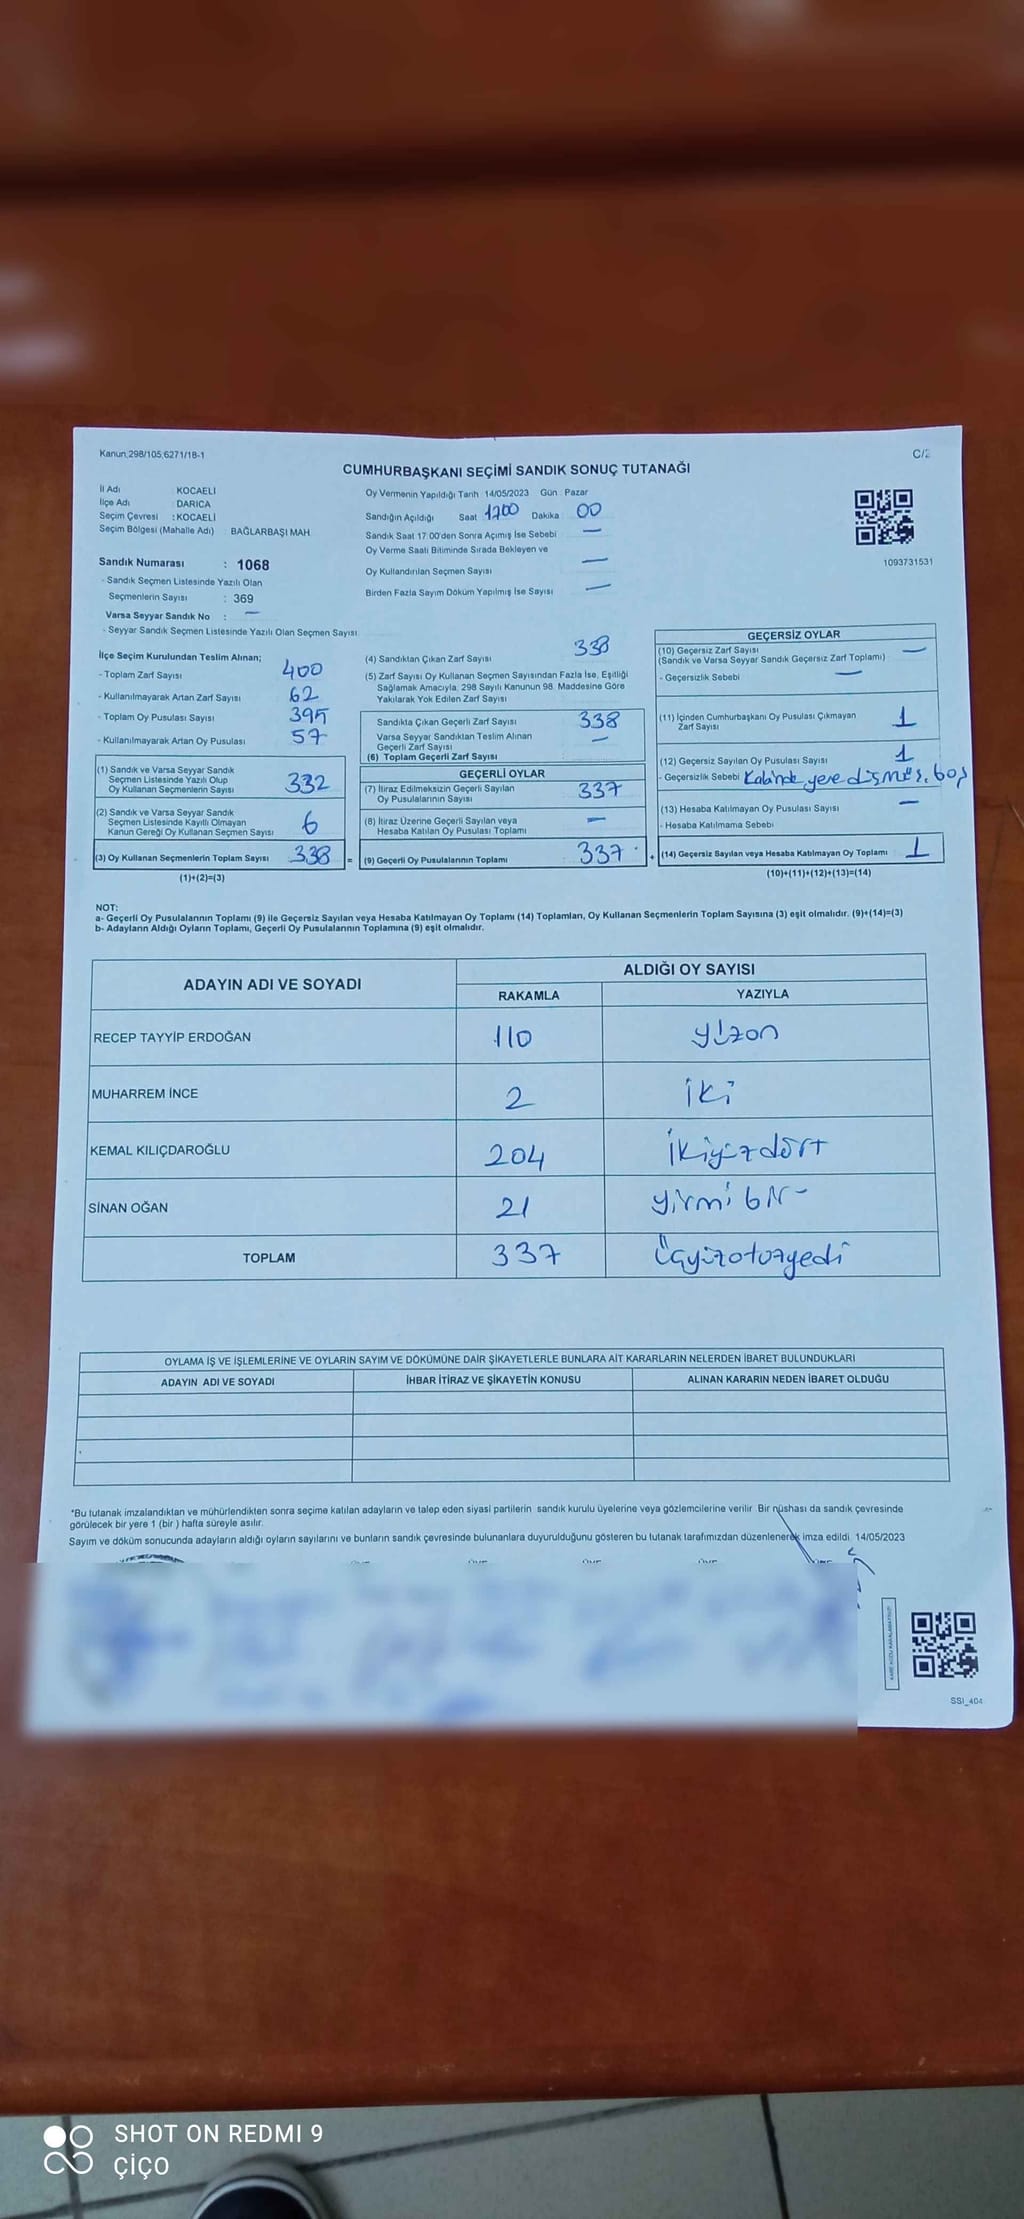 Kanun;298/105;6271/18-1
CUMHURBAŞKANI SEÇİMİ SANDIK SONUÇ TUTANAĞI
İl Adı : KOCAELİ
İlçe Adı : DARICA
Seçim Çevresi : KOCAELİ
Seçim Bölgesi (Mahalle Adı) BAĞLARBAŞI MAH.
Sandık Numarası : 1068
- Sandık Seçmen Listesinde Yazılı Olan
Seçmenlerin Sayısı : 369
Varsa Seyyar Sandık No : —
- Seyyar Sandık Seçmen Listesinde Yazılı Olan Seçmen Sayısı
Oy Vermenin Yapıldığı Tarih 14/05/2023 Gün Pazar
Sandığın Açıldığı Saat 1700 Dakika 00
Sandık Saat 17:00'den Sonra Açımış İse Sebebi —
Oy Verme Saati Bitiminde Sırada Bekleyen ve
Oy Kullandırılan Seçmen Sayısı —
Birden Fazla Sayım Döküm Yapılmış İse Sayısı —
1093731531
İlçe Seçim Kurulundan Teslim Alınan;
- Toplam Zarf Sayısı 400
- Kullanılmayarak Artan Zarf Sayısı 62
- Toplam Oy Pusulası Sayısı 395
- Kullanılmayarak Artan Oy Pusulası 57
(1) Sandık ve Varsa Seyyar Sandık
Seçmen Listesinde Yazılı Olup
Oy Kullanan Seçmenlerin Sayısı 332
(2) Sandık ve Varsa Seyyar Sandık
Seçmen Listesinde Kayıtlı Olmayan
Kanun Gereği Oy Kullanan Seçmen Sayısı 6
(3) Oy Kullanan Seçmenlerin Toplam Sayısı 338 =
(1)+(2)=(3)
(4) Sandıktan Çıkan Zarf Sayısı 338
(5) Zarf Sayısı Oy Kullanan Seçmen Sayısından Fazla İse, Eşitliği
Sağlamak Amacıyla, 298 Sayılı Kanunun 98. Maddesine Göre
Yakılarak Yok Edilen Zarf Sayısı
Sandıkta Çıkan Geçerli Zarf Sayısı 338
Varsa Seyyar Sandıktan Teslim Alınan
Geçerli Zarf Sayısı —
(6) Toplam Geçerli Zarf Sayısı
GEÇERLİ OYLAR
(7) İtiraz Edilmeksizin Geçerli Sayılan
Oy Pusulalarının Sayısı 337
(8) İtiraz Üzerine Geçerli Sayılan veya
Hesaba Katılan Oy Pusulası Toplamı —
(9) Geçerli Oy Pusulalarının Toplamı 337 +
GEÇERSİZ OYLAR
(10) Geçersiz Zarf Sayısı —
(Sandık ve Varsa Seyyar Sandık Geçersiz Zarf Toplamı)
- Geçersizlik Sebebi —
(11) İçinden Cumhurbaşkanı Oy Pusulası Çıkmayan
Zarf Sayısı 1
(12) Geçersiz Sayılan Oy Pusulası Sayısı 1
- Geçersizlik Sebebi Kabinde yere düşmüş. boş
(13) Hesaba Katılmayan Oy Pusulası Sayısı —
- Hesaba Katılmama Sebebi
(14) Geçersiz Sayılan veya Hesaba Katılmayan Oy Toplamı 1
(10)+(11)+(12)+(13)=(14)
NOT:
a- Geçerli Oy Pusulalarının Toplamı (9) ile Geçersiz Sayılan veya Hesaba Katılmayan Oy Toplamı (14) Toplamları, Oy Kullanan Seçmenlerin Toplam Sayısına (3) eşit olmalıdır. (9)+(14)=(3)
b- Adayların Aldığı Oyların Toplamı, Geçerli Oy Pusulalarının Toplamına (9) eşit olmalıdır.
ADAYIN ADI VE SOYADI ALDIĞI OY SAYISI
RAKAMLA YAZIYLA
RECEP TAYYİP ERDOĞAN 110 yüzon
MUHARREM İNCE 2 iki
KEMAL KILIÇDAROĞLU 204 ikiyüzdört
SİNAN OĞAN 21 yirmi bir
TOPLAM 337 Üçyüzotuzyedi
OYLAMA İŞ VE İŞLEMLERİNE VE OYLARIN SAYIM VE DÖKÜMÜNE DAİR ŞİKAYETLERLE BUNLARA AİT KARARLARIN NELERDEN İBARET BULUNDUKLARI
ADAYIN ADI VE SOYADI İHBAR İTİRAZ VE ŞİKAYETİN KONUSU ALINAN KARARIN NEDEN İBARET OLDUĞU
*Bu tutanak imzalandıktan ve mühürlendikten sonra seçime katılan adayların ve talep eden siyasi partilerin sandık kurulu üyelerine veya gözlemcilerine verilir. Bir nüshası da sandık çevresinde
görülecek bir yere 1 (bir ) hafta süreyle asılır.
Sayım ve döküm sonucunda adayların aldığı oyların sayılarını ve bunların sandık çevresinde bulunanlara duyurulduğunu gösteren bu tutanak tarafımızdan düzenlenerek imza edildi. 14/05/2023
SSI_404
SHOT ON REDMI 9
çiço